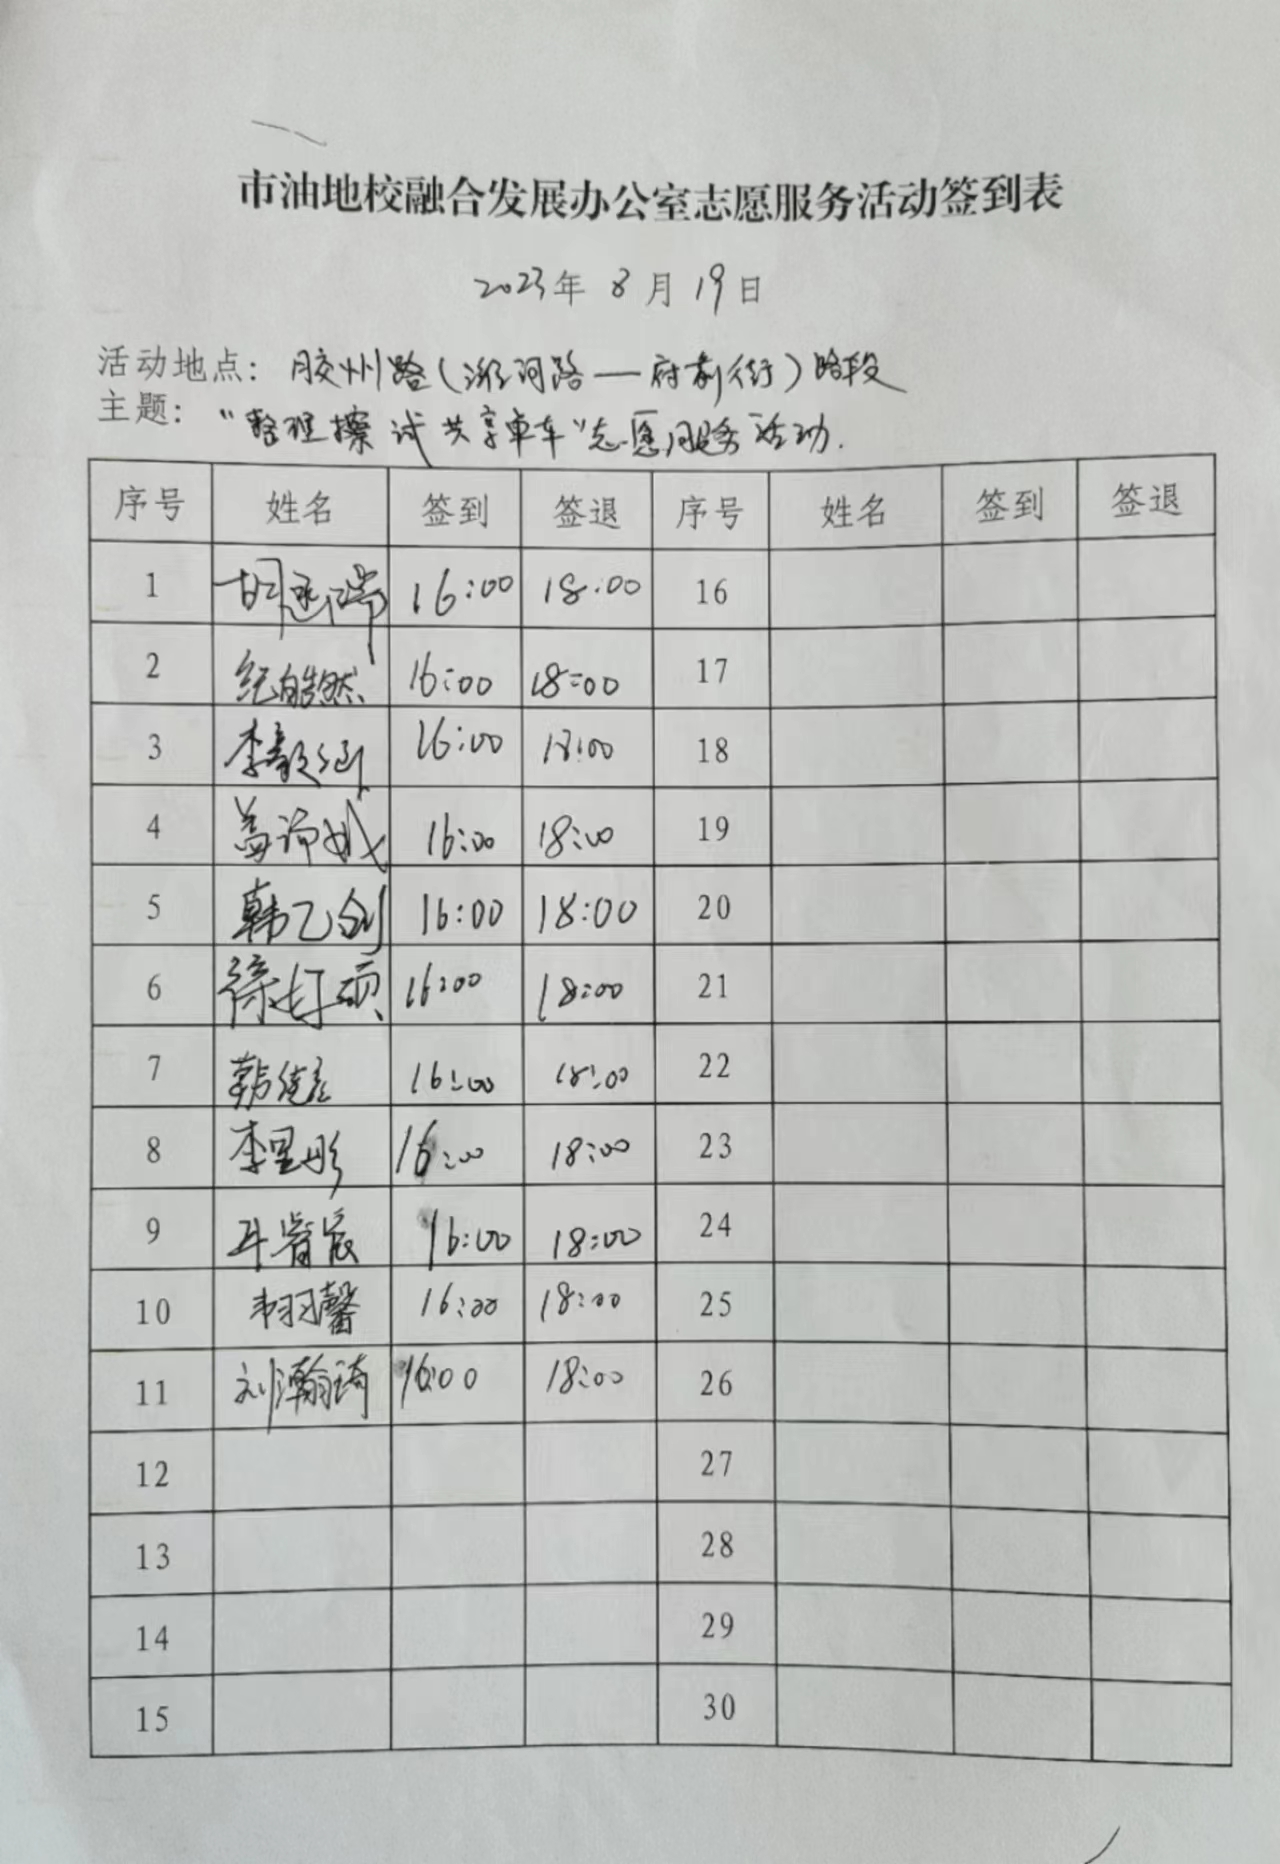 市油地校融合发展办公室志愿服务活动签到表
2023年 8月 19日
活动地点：胶州路（潍河路—府前街）路段
主题：“整理擦试共享单车”志愿服务活动.
序号 姓名 签到 签退 序号 姓名 签到 签退
1 胡 16:00 18:00 16
2 纪皓然 16:00 18:00 17
3 李 16:00 18:00 18
4 16:00 18:00 19
5 韩乙剑 16:00 18:00 20
6 徐 硕 16:00 18:00 21
7 16:00 18:00 22
8 李星彤 16:00 18:00 23
9 睿宸 16:00 18:00 24
10 韦羽馨 16:00 18:00 25
11 刘瀚琦 16:00 18:00 26
12 27
13 28
14 29
15 30